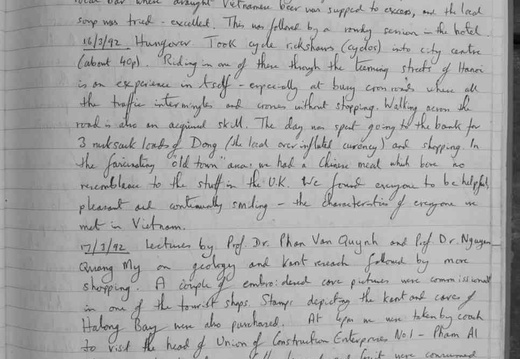 local bar where draught Vietnamese beer was supped to excess, and the local
soup was tried - excellent. This was followed by a rowdy session - the hotel
16/3/92 Hungover Took cycle rickshaws (cyclos) into city centre
(about 40p). Riding in one of these through the teeming streets of Hanoi
is an experience in itself - especially at busy crossroads where all
the traffic intermingles and crosses without stopping. Walking across the
road is also an acquired skill. The day was spent going to the bank for
3 rucksack loads of Dong (the local over inflated currency) and shopping. In
the fascinating "old town" area we had a Chinese meal which bore no
resemblance to the stuff in the U.K. We found everyone to be helpful,
pleasant and continually smiling - the characteristics of everyone we
met in Vietnam.
17/3/92 Lectures by Prof. Dr. Phan Van Quynh and Prof. Dr. Nguyen
Quang My on geology and karst research followed by more
shopping. A couple of embroidered cave pictures were commissioned
in one of the tourist shops. Stamps depicting the karst and caves of
Halong Bay were also purchased. At 4pm we were taken by coach
to visit the head of Union of Construction Enterprises No 1 - Pham Al
fruit were consumed